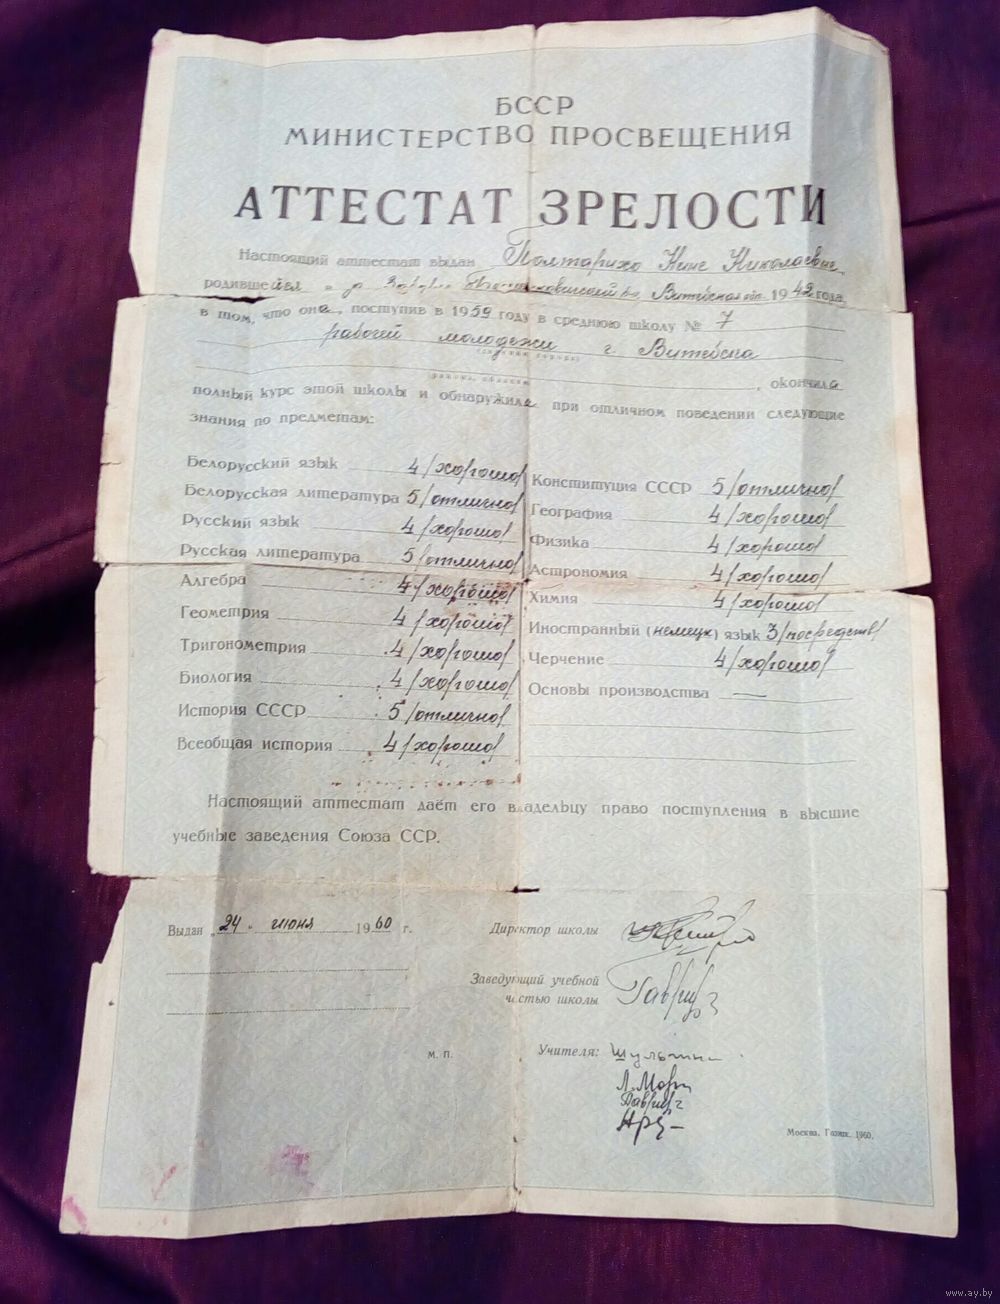 БССР
МИНИСТЕРСТВО ПРОСВЕЩЕНИЯ
АТТЕСТАТ ЗРЕЛОСТИ
Настоящий аттестат выдан Полтарихо Нине Николаевне,
родившейся в Витебской обл. 1942 года,
в том, что она, поступив в 1959 году в среднюю школу № 7
рабочей молодежи г. Витебска
района, области, окончила
полный курс этой школы и обнаружила при отличном поведении следующие
знания по предметам:
Белорусский язык 4/хорошо/
Белорусская литература 5/отлично/
Русский язык 4/хорошо/
Русская литература 5/отлично/
Алгебра 4/хорошо/
Геометрия 4/хорошо/
Тригонометрия 4/хорошо/
Биология 4/хорошо/
История СССР 5/отлично/
Всеобщая история 4/хорошо/
Конституция СССР 5/отлично/
География 4/хорошо/
Физика 4/хорошо/
Астрономия 4/хорошо/
Химия 4/хорошо/
Иностранный (немецк) язык 3/посредств/
Черчение 4/хорошо/
Основы производства —
Настоящий аттестат даёт его владельцу право поступления в высшие
учебные заведения Союза ССР.
Выдан „24" июня 1960 г.
Директор школы
Заведующий учебной
частью школы
М. П.
Учителя:
Москва. Гознак. 1960.
www.ay.by